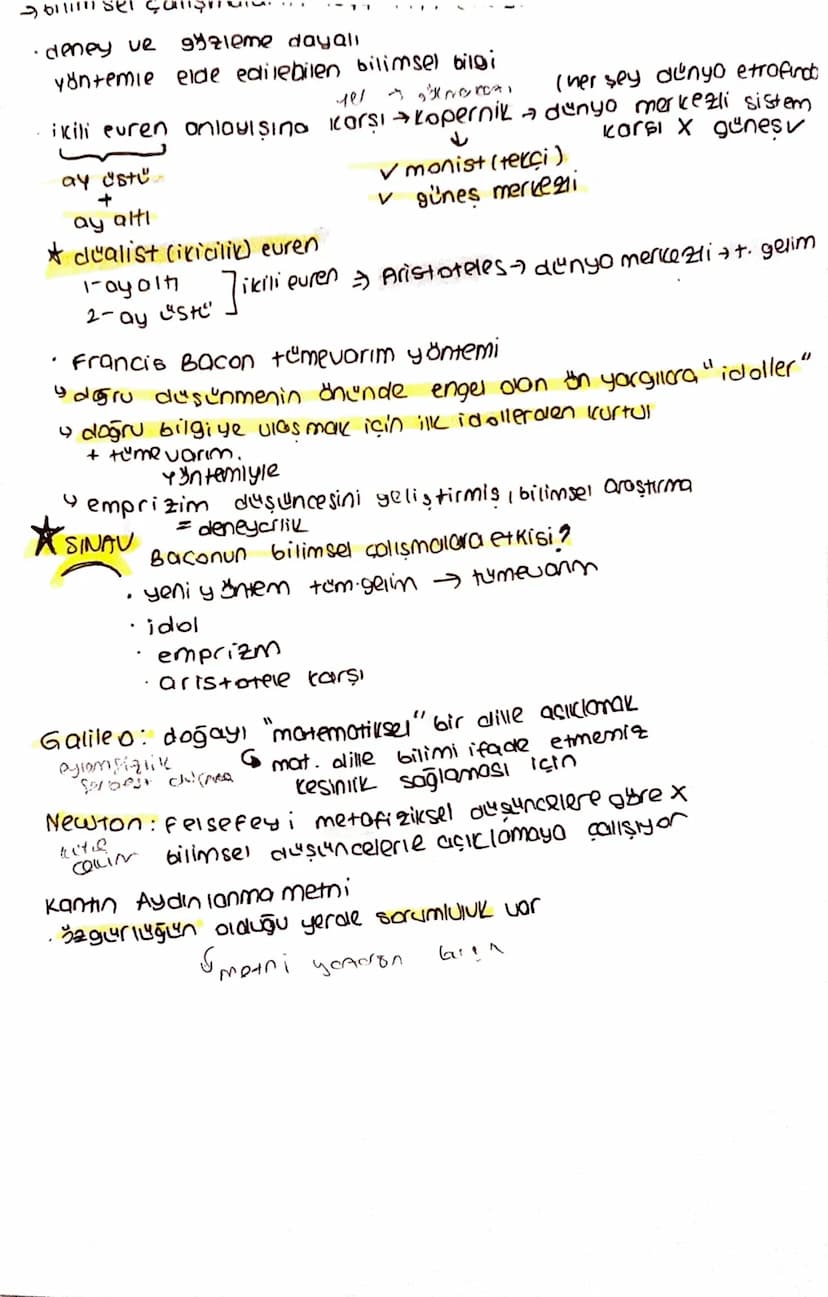 → bilimsel çalışmalar
· deney ve gözleme dayalı
yöntemle elde edilebilen bilimsel bilgi
(her şey dünya etrafında
· ikili evren anlayışına karşı → Kopernik → dünya merkezli sistem
karşı X güneş ✓
ay üstü
+
ay altı
↓
✓ monist (tekçi)
✓ güneş merkezli
★ düalist (ikicilik) evren
1- ay altı
2- ay üstü
] ikili evren ⇒ Aristoteles → dünya merkezli → t. gelim
· Francis Bacon tümevarım yöntemi
↳ doğru düşünmenin önünde engel olan ön yargılara "idoller"
↳ doğru bilgiye ulaşmak için ilk idollerden kurtul
+ tümevarım.
yöntemiyle
↳ emprizim düşüncesini geliştirmiş, bilimsel araştırma
= deneycilik
★ SINAV
Baconun bilimsel çalışmalara etkisi?
· yeni yöntem tüm.gelim → tümevarım
· idol
· emprizm
· aristotele karşı
Galileo: doğayı "matematiksel" bir dille açıklamak
↳ mat. dille bilimi ifade etmemiz
eylemsizlik
serbest düşme
kesinlik sağlaması için
Newton: Felsefeyi metafiziksel düşüncelere göre X
kütle
çekim
bilimsel düşüncelerle açıklamaya çalışıyor
Kantın Aydınlanma metni
· özgürlüğün olduğu yerde sorumluluk var
↳ metni